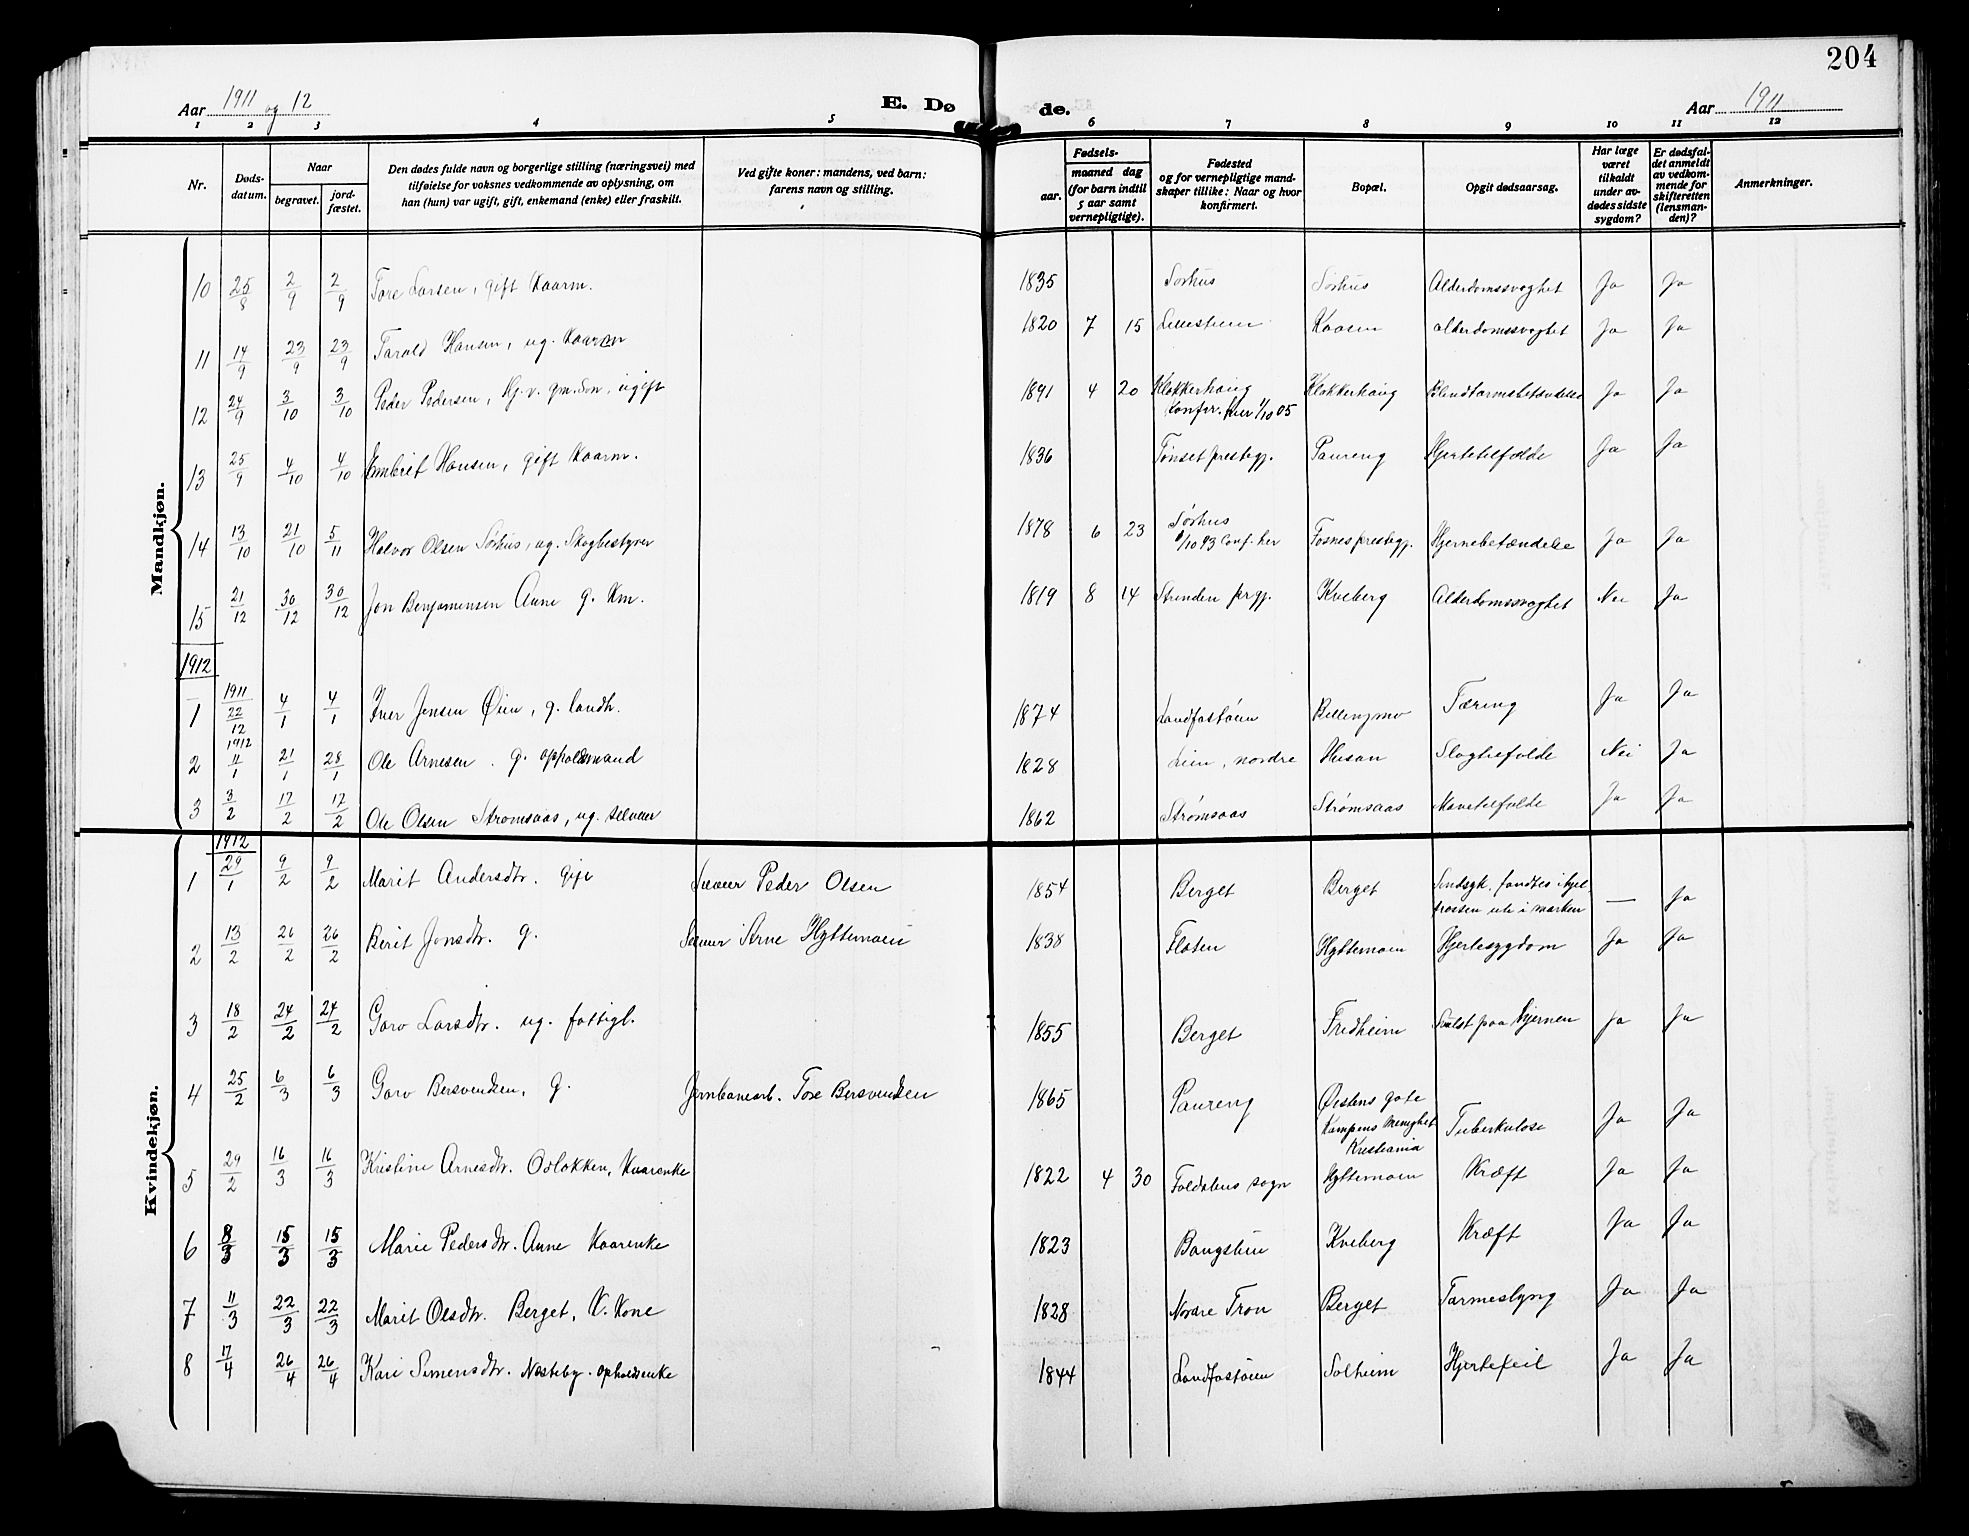 204
Aar 1911 og 12
E. Døde.
Aar 1911
1 2 3 4 5 6 7 8 9 10 11 12
Nr.
Døds-datum.
Naar
begravet.
jord-fæstet.
Den dødes fulde navn og borgerlige stilling (næringsvei) med
tilføielse for voksnes vedkommende av oplysning, om
han (hun) var ugift, gift, enkemand (enke) eller fraskilt.
Ved gifte koner: mandens, ved barn:
farens navn og stilling.
Fødsels-
aar.
maaned dag
(for barn indtil
5 aar samt
vernepligtige).
Fødested
og for vernepligtige mand-
skaper tillike: Naar og hvor
konfirmert.
Bopæl.
Opgit dødsaarsag.
Har læge
været
tilkaldt
under av-
dødes sidste
sygdom?
Er dødsfal-
det anmeldt
av vedkom-
mende for
skifteretten
(lensman-
den)?
Anmerkninger.
Mandkjøn.
10 25/8 2/9 2/9 Tore Larsen, gift Kaarm. 1835 Sørhus Sørhus Alderdomssvaghet Ja Ja
11 14/9 23/9 23/9 Tarald Hansen, ug. Kaarm 1820 7 15 Kaasen alderdomssvaghet Ja Ja
12 24/9 3/10 3/10 Peder Pedersen, Kj. v. gm. Søn, ugift 1891 4 20 Klokkerhaug Klokkerhaug Blindtarmsbetændelse Ja Ja
Konfir. her 1/10 05
13 25/9 4/10 4/10 Embret Hansen, gift Kaarm. 1836 Tønset prestegj. Paureng Hjertetilfælde Ja Ja
14 13/10 21/10 5/11 Halvor Olsen Sørhus, ug. Skogbestyrer 1878 6 23 Sørhus Fosnes prestegj. Hjernebetændelse Ja Ja
/10 93 Conf. her
15 21/12 30/12 30/12 Jon Benjaminsen Aune g. Km. 1819 8 14 Strinden prgj. Kveberg Alderdomssvaghet Nei Ja
1912
1 1911 22/12 4/1 4/1 Iver Jensen Øien, g. landh. 1874 Landfastøien Bellingmo Tæring Ja Ja
2 1912 11/1 21/1 28/1 Ole Arnesen. g. opholdsmand 1828 Lien, nordre Husan Slagtilfælde Nei Ja
3 3/2 17/2 17/2 Ole Olsen Strømsaas, ug. selveier 1862 Strømsaas Strømsaas Mavetilfælde Ja Ja
Kvindekjøn.
1912
1 29/1 9/2 9/2 Marit Andersdtr. gift Selveier Peder Olsen 1854 Berget Berget Sindsyk. fandtes ihjel- — Ja
frossen ute i marken
2 13/2 26/2 26/2 Berit Jonsdtr. g. Selveier Arne Hyttemoen 1838 Flaten Hyttemoen Hjertesygdom Ja Ja
3 18/2 24/2 24/2 Goro Larsdtr. ug. fattigl. 1855 Berget Fredheim Svulst paa hjernen Ja Ja
4 25/2 6/3 6/3 Goro Bersvendsen, g. Jernbanearb. Tore Bersvendsen 1865 Paureng Østens gate
Kampens Menighet
Kristiania Tuberkulose Ja Ja
5 29/2 16/3 16/3 Kristine Arnesdtr. Oslokken, Kaarenke 1822 4 30 Foldalens sogn Hyttemoen Kræft Ja Ja
6 8/3 15/3 15/3 Marie Pedersdtr. Aune Kaarenke 1823 Baugstien Kveberg Kræft Ja Ja
7 11/3 22/3 22/3 Marit Olsdtr. Berget, K. Kone 1828 Nordre Tron Berget Tarmeslyng Ja Ja
8 17/4 26/4 26/4 Kari Simensdtr. Næsteby. opholdsenke 1844 Landfastøien Solheim Hjertefeil Ja Ja